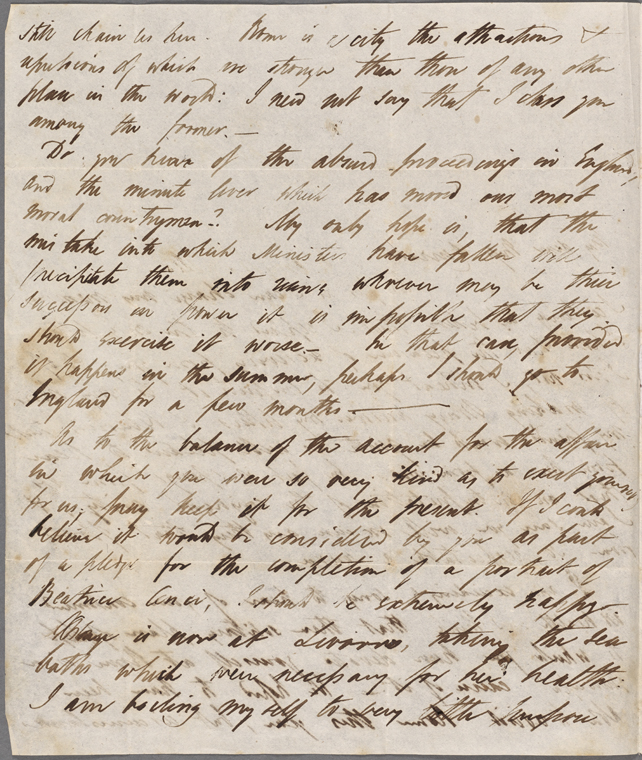 still chain us here. Rome is a city the attractions &
repulsions of which are stronger than those of any other
place in the world: I need not say that I class you
among the former.—
Do you hear of the absurd proceedings in England,
and the minute lever which has moved our most
moral countrymen? My only hope is, that the
mistake into which Ministers have fallen will
precipitate them into ruin; whoever may be their
successors in power it is impossible that they
should exercise it worse— In that case, provided
it happens in the summer, perhaps I should go to
England for a few months.—
As to the balance of the account for the affair
in which you were so very kind as to exert yourself
for us, pray keep it for the present. If I could
believe it would be considered by you as part
of a pledge for the completion of a portrait of
Beatrice Cenci, I should be extremely happy—
Mary is now at Livorno, taking the sea
baths which were necessary for her health.
I am boiling myself to very little purpose